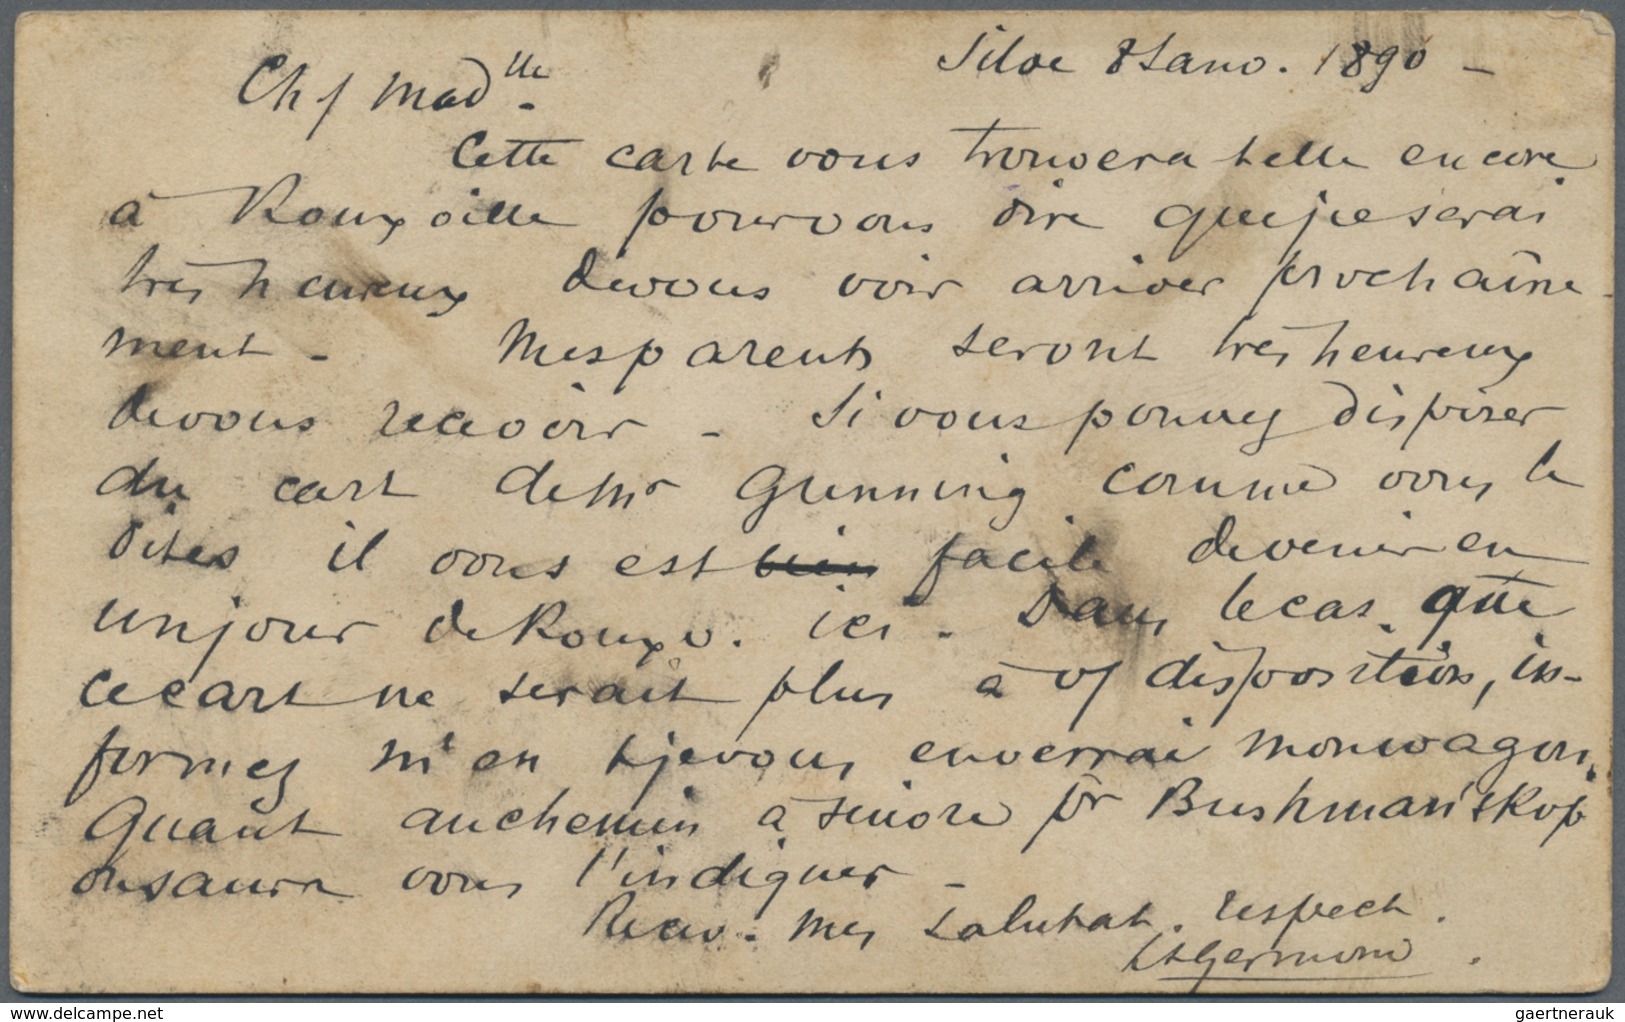 Siloe 8 Janv. 1890 -
Ch / Mad lle.
Cette carte vous trouvera t elle encore
à Rouxville pour vous dire que je serai
très heureux de vous voir arriver prochaine
ment - Mes parents seront très heureux
de vous recevoir - Si vous pouvez disposer
du cart de Mr Gunning comme vous le
dites il vous est bien facile de venir en
un jour de Rouxv. ici - Dans le cas que
ce cart ne serait plus à v/ disposition, in-
formez m'en & je vous enverrai mon wagon.
Quant au chemin à suivre pr Bushman's Kop
on saura vous l'indiquer -
Recev. mes salutat. respect.
Germond.
www.delcampe.net
gaertnerauk